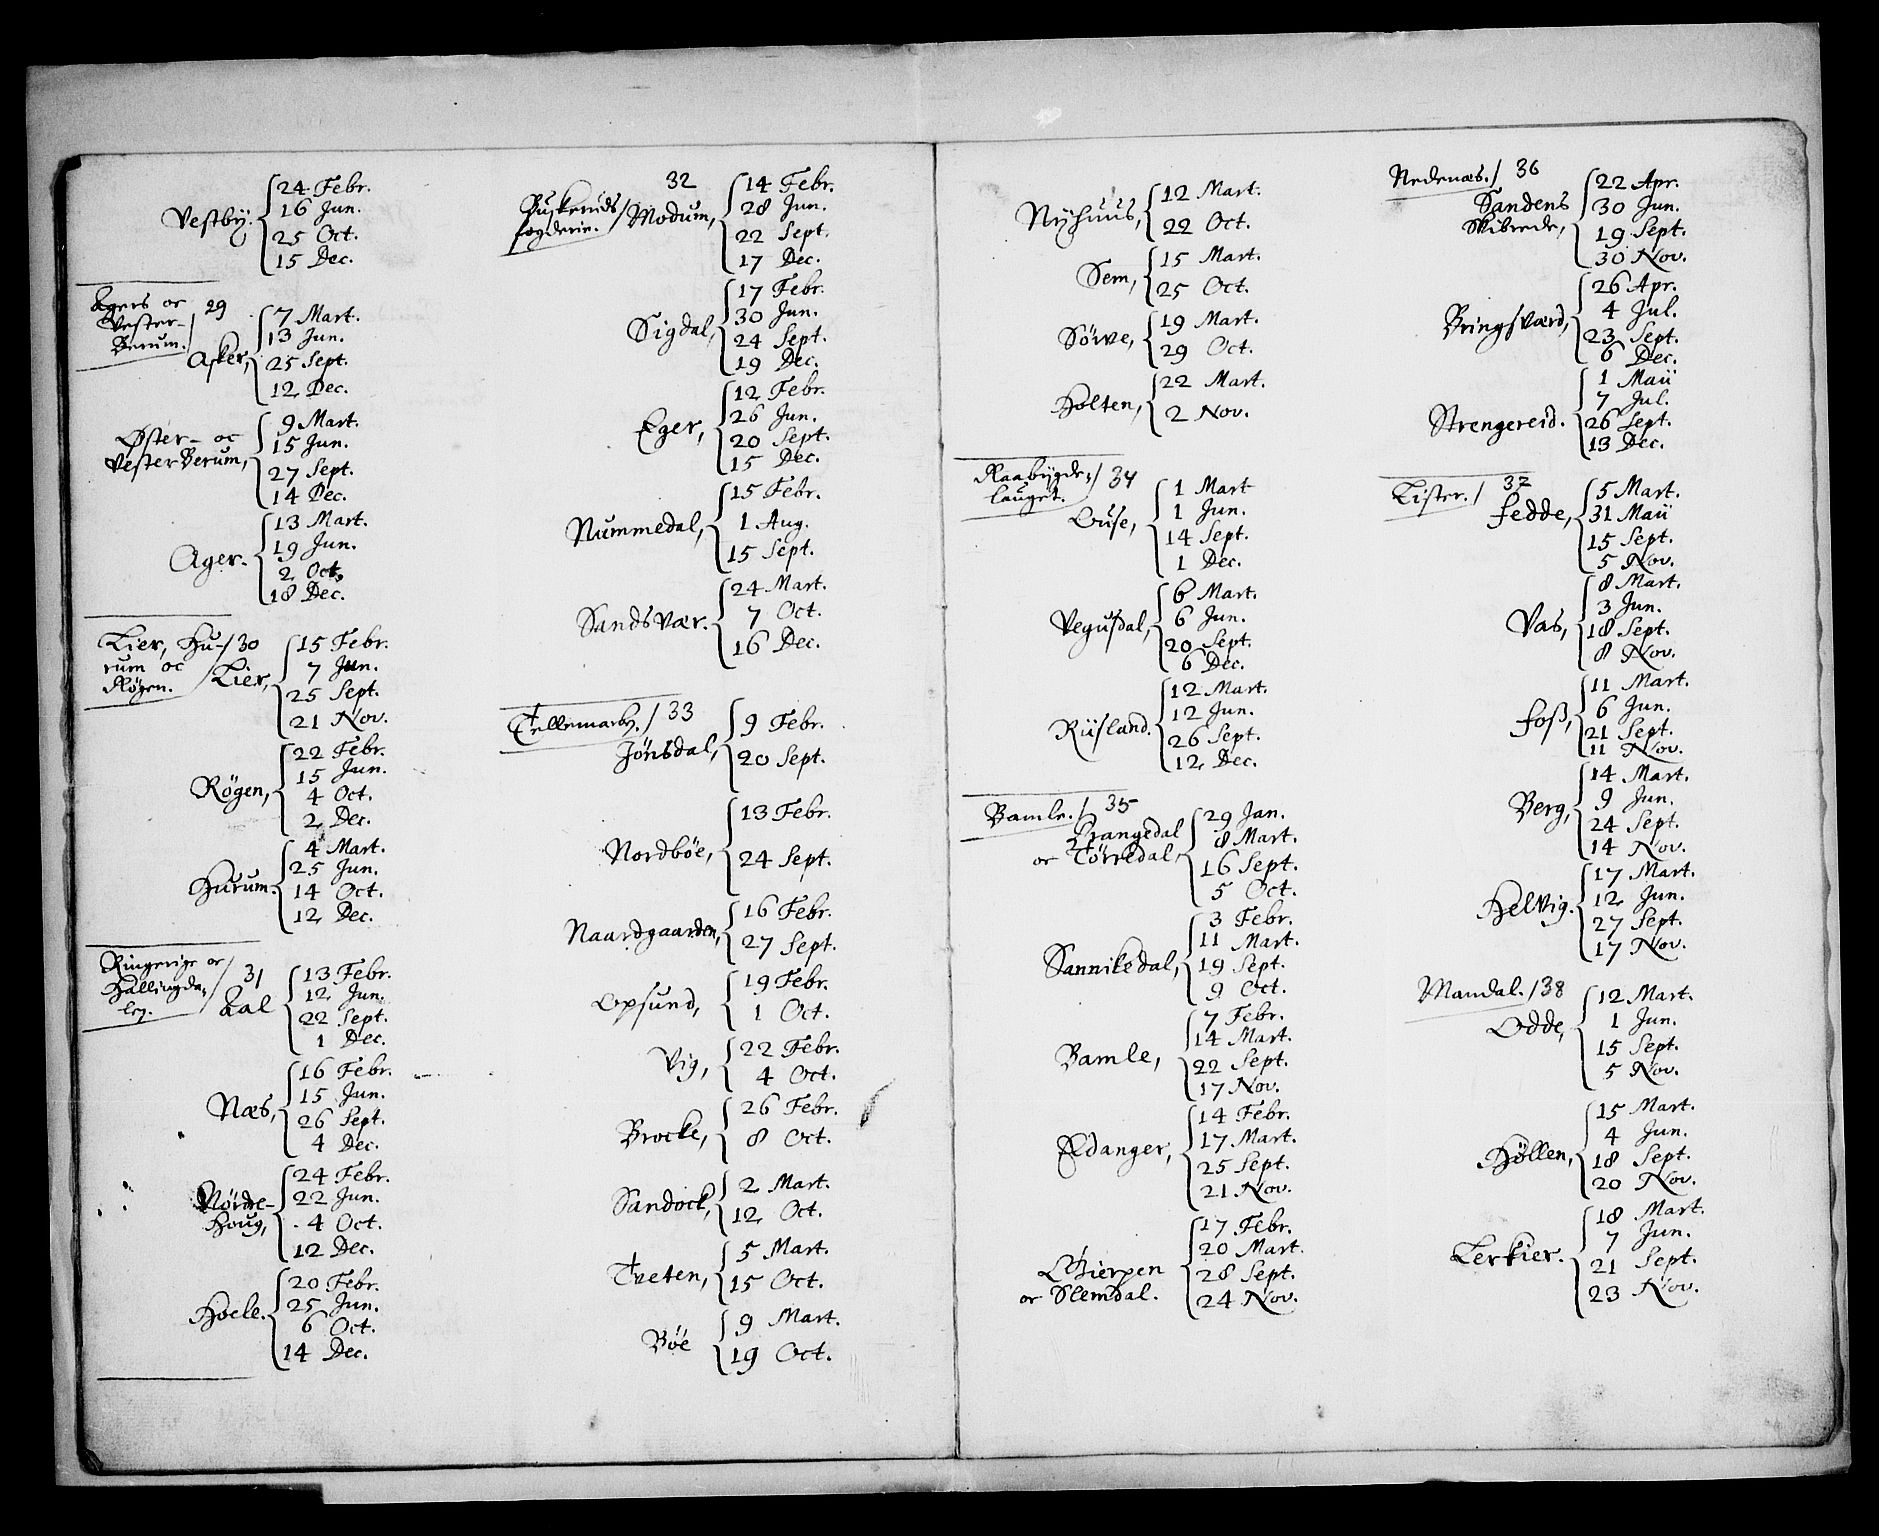 Vestby.
24 Febr.
16 Jun.
25 Oct.
15 Dec.
Agers oc
Vester-
Berum. / 29
Asker,
7 Mart.
13 Jun.
25 Sept.
12 Dec.
Øster- oc
Vester Berum,
9 Mart.
15 Jun.
27 Sept.
14 Dec.
Ager.
13 Mart.
19 Jun.
2 Oct.
18 Dec.
Lier, Hu- / 30
rum oc
Røgen.
Lier,
15 Febr.
7 Jun.
25 Sept.
21 Nov.
Røgen,
22 Febr.
15 Jun.
4 Oct.
2 Dec.
Hurum.
4 Mart.
25 Jun.
14 Oct.
12 Dec.
Ringerige oc
Hallingda-
ley. / 31
Aal
13 Febr.
12 Jun.
22 Sept.
1 Dec.
Næs,
16 Febr.
15 Jun.
26 Sept.
4 Dec.
Nörde-
Houg,
24 Febr.
22 Jun.
4 Oct.
12 Dec.
Hoele.
20 Febr.
25 Jun.
6 Oct.
14 Dec.
32
Buskeruds
fogderie. / Modum,
14 Febr.
28 Jun.
22 Sept.
17 Dec.
Sigdal,
17 Febr.
30 Jun.
24 Sept.
19 Dec.
Eger,
12 Febr.
26 Jun.
20 Sept.
15 Dec.
Nummedal,
15 Febr.
1 Aug.
15 Sept.
Sandsvær.
24 Mart.
7 Oct.
16 Dec.
Tellemarken. / 33
Jönsdal,
9 Febr.
20 Sept.
Nordböe,
13 Febr.
24 Sept.
Naardgaarden,
16 Febr.
27 Sept.
Opsund,
19 Febr.
1 Oct.
Vig,
22 Febr.
4 Oct.
Brocke,
26 Febr.
8 Oct.
Sandock,
2 Mart.
12 Oct.
Tveten,
5 Mart.
15 Oct.
Böe
9 Mart.
19 Oct.
Nyhuus,
12 Mart.
22 Oct.
Sem,
15 Mart.
25 Oct.
Sörve,
19 Mart.
29 Oct.
Holten,
22 Mart.
2 Nov.
Raabygde- / 34
lauget.
Ouse,
1 Mart
1 Jun.
14 Sept.
1 Dec.
Vegusdal,
6 Mart.
6 Jun.
20 Sept.
6 Dec.
Riisland.
12 Mart.
12 Jun.
26 Sept.
12 Dec.
Bamle. / 35
Drangedal
oc Törredal,
29 Jan.
8 Mart.
16 Sept.
5 Oct.
Sannikedal,
3 Febr.
11 Mart.
19 Sept.
9 Oct.
Bamle,
7 Febr.
14 Mart.
22 Sept.
17 Nov.
Edanger,
14 Febr.
17 Mart.
25 Sept.
21 Nov.
Gierpen
oc Slemdal.
17 Febr.
20 Mart.
28 Sept.
24 Nov.
Nedenæs. / 36
Sandens
Skibrede,
22 Apr.
30 Jun.
19 Sept.
30 Nov.
Bringsværd,
26 Apr.
4 Jul.
23 Sept.
6 Dec.
Strengereid.
1 Maii
7 Jul.
26 Sept.
13 Dec.
Lister. / 37
Fedde,
5 Mart.
31 Maii
15 Sept.
5 Nov.
Vas,
8 Mart.
3 Jun.
18 Sept.
8 Nov.
Foss,
11 Mart.
6 Jun.
21 Sept.
11 Nov.
Berg,
14 Mart.
9 Jun.
24 Sept.
14 Nov.
Helvig.
17 Mart.
12 Jun.
27 Sept.
17 Nov.
Mandal. / 38
Odde,
12 Mart.
1 Jun.
15 Sept.
5 Nov.
Höllen,
15 Mart.
4 Jun.
18 Sept.
20 Nov.
Lerkier.
18 Mart.
7 Jun.
21 Sept.
23 Nov.